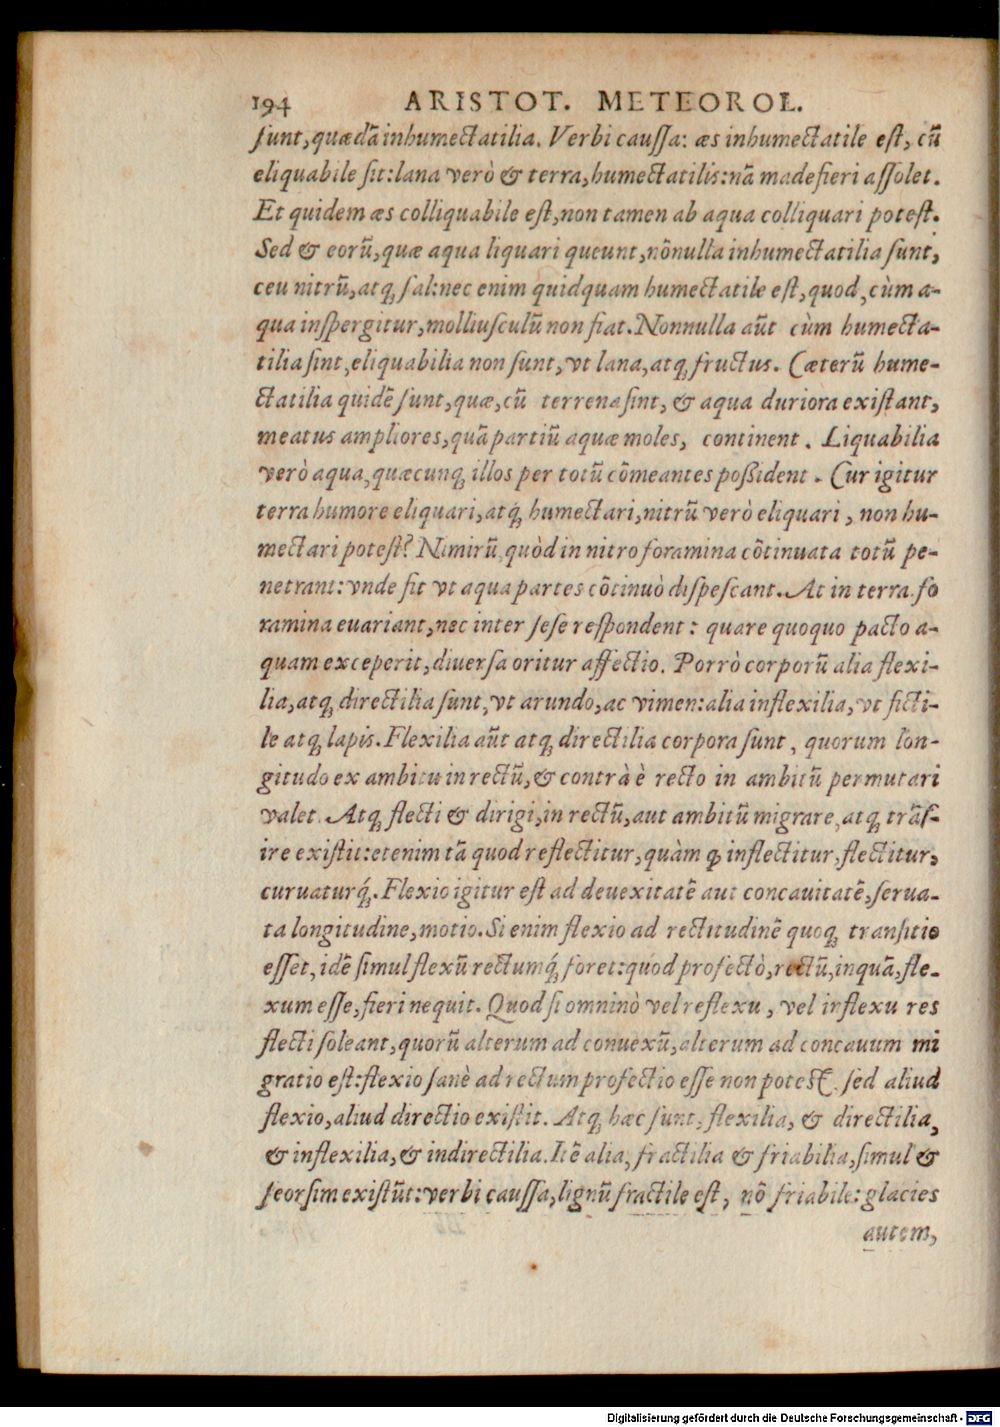 194 ARISTOT. METEOROL.
ſunt, quædā inhumectatilia. Verbi cauſſa: æs inhumectatile eſt, cū
eliquabile ſit: lana verò & terra, humectatilis: nā madefieri aſſolet.
Et quidem æs colliquabile eſt, non tamen ab aqua colliquari poteſt.
Sed & eorū, quæ aqua liquari queunt, nōnulla inhumectatilia ſunt,
ceu nitrū, atq; ſal: nec enim quidquam humectatile eſt, quod, cùm a-
qua inſpergitur, molliuſculū non fiat. Nonnulla aūt cùm humecta-
tilia ſint, eliquabilia non ſunt, vt lana, atq; fructus. Cæterū hume-
ctatilia quidē ſunt, quæ, cū terrena ſint, & aqua duriora exiſtant,
meatus ampliores, quā partiū aquæ moles, continent. Liquabilia
verò aqua, quæcunq; illos per totū cōmeantes poßident. Cur igitur
terra humore eliquari, atq́; humectari, nitrū verò eliquari, non hu-
mectari poteſt? Nimirū, quòd in nitro foramina cōtinuata totū pe-
netrant: vnde fit vt aqua partes cōtinuò diſpeſcant. At in terra fo
ramina euariant, nec inter ſeſe reſpondent: quare quoquo pacto a-
quam exceperit, diuerſa oritur affectio. Porrò corporū alia flexi-
lia, atq; directilia ſunt, vt arundo, ac vimen: alia inflexilia, vt ficti-
le atq; lapis. Flexilia aūt atq; directilia corpora ſunt, quorum lon-
gitudo ex ambitu in rectū, & contrà è recto in ambitū permutari
valet. Atq; flecti & dirigi, in rectū, aut ambitū migrare, atq; trāſ-
ire exiſtit: etenim tā quod reflectitur, quàm ꝙ inflectitur, flectitur,
curuaturq́;. Flexio igitur eſt ad deuexitatē aut concauitatē, ſerua-
ta longitudine, motio. Si enim flexio ad rectitudinē quoq; tranſitio
eſſet, idē ſimul flexū rectumq́; foret: quod profectò, rectū, inquā, fle-
xum eſſe, fieri nequit. Quod ſi omninò vel reflexu, vel inflexu res
flecti ſoleant, quorū alterum ad conuexū, alterum ad concauum mi
gratio eſt: flexio ſanè ad rectum profectio eſſe non poteſt. ſed aliud
flexio, aliud directio exiſtit. Atq; hæc ſunt, flexilia, & directilia,
& inflexilia, & indirectilia. Itē alia, fractilia & friabilia, ſimul &
ſeorſim exiſtūt: verbi cauſſa, lignū fractile eſt, nō friabile: glacies
autem,
Digitalisierung gefördert durch die Deutsche Forschungsgemeinschaft - DFG